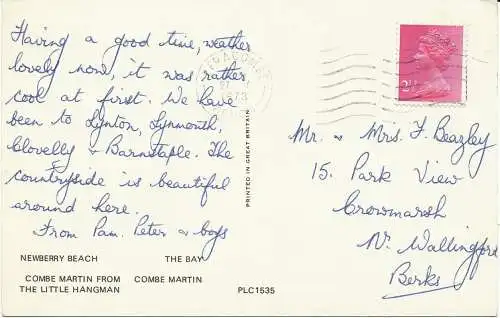 Having a good time, weather
lovely now, it was rather
cool at first. We have
been to Lynton, Lynmouth,
Clovelly & Barnstaple. The
countryside is beautiful
around here.
From Pam. Peter & boys
NEWBERRY BEACH
THE BAY
COMBE MARTIN FROM
THE LITTLE HANGMAN
COMBE MARTIN
PLC1535
PRINTED IN GREAT BRITAIN
1973
2½
Mr. & Mrs. F. Beazley
15. Park View
Crowmarsh
Nr. Wallingford
Berks